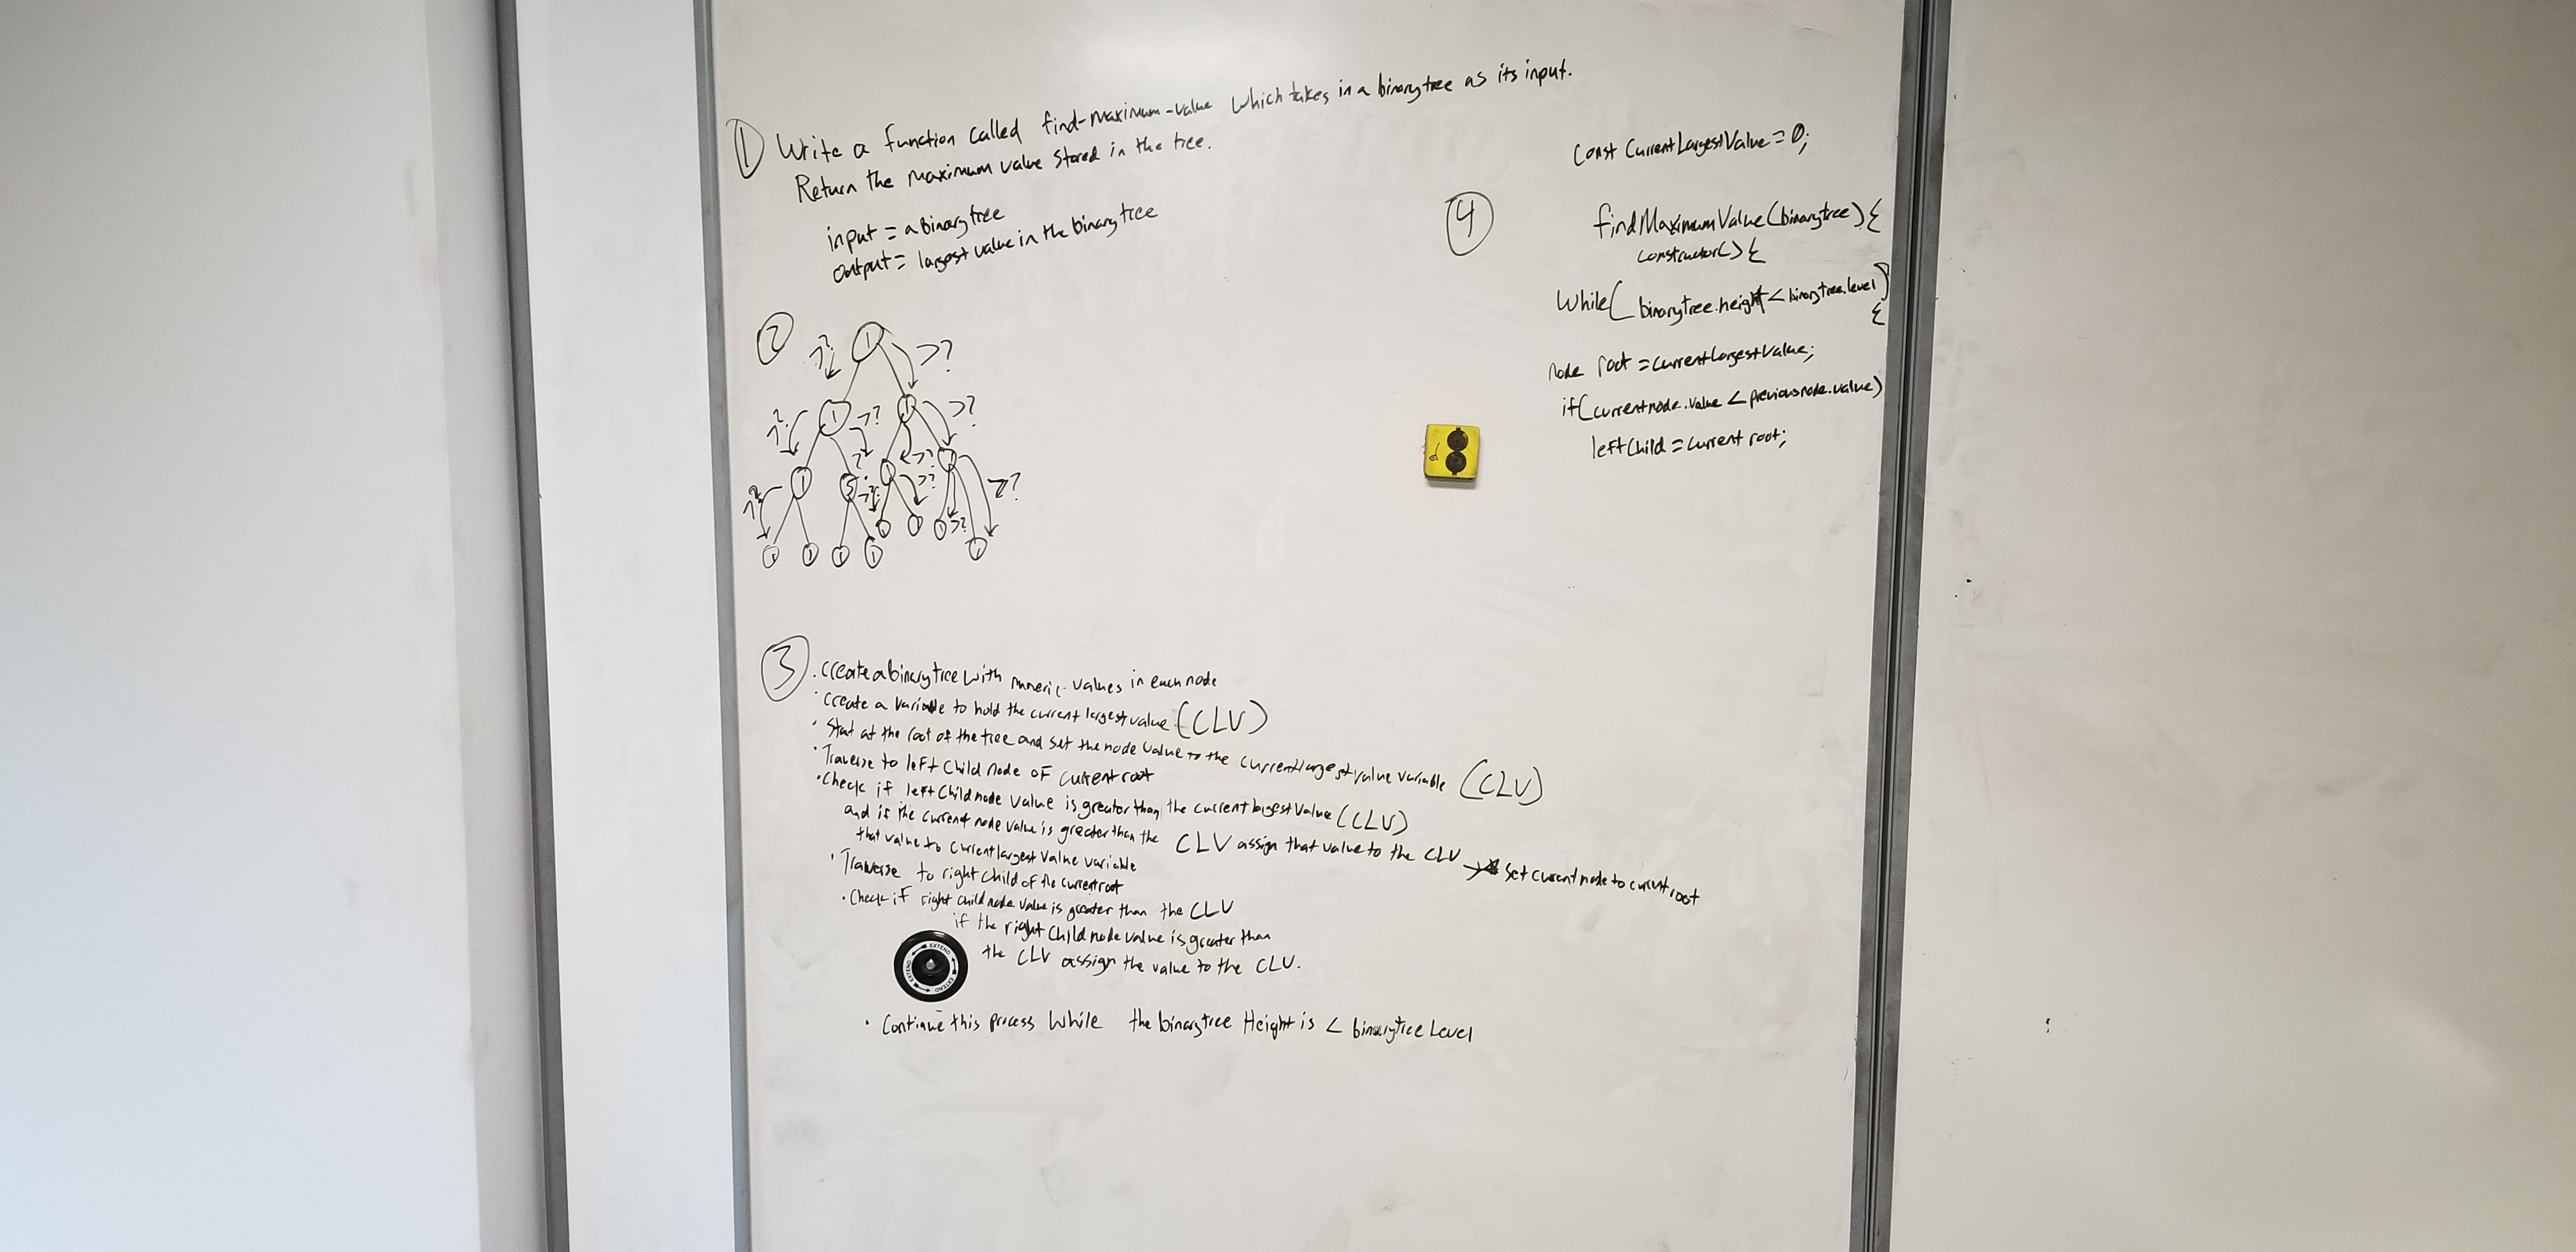 ① Write a function called find-maximum-value which takes in a binary tree as its input.
Return the maximum value stored in the tree.
input = a binary tree
output = largest value in the binary tree
②
1
>?
>?
1
1
>?
>?
>?
1
5
>?
>?
>?
>?
>?
>?
③
. create a binary tree with numeric values in each node
· create a variable to hold the current largest value (CLV)
· Start at the root of the tree and set the node value to the current largest value variable (CLV)
· Traverse to left child node of current root
· Check if left child node value is greater than the current largest value (CLV)
and if the current node value is greater than the CLV assign that value to the CLV → * set current node to current root
that value to current largest value variable
· Traverse to right child of the current root
· Check if right child node value is greater than the CLV
if the right child node value is greater than
the CLV assign the value to the CLV.
EXTEND EXTEND EXTEND EXTEND
· Continue this process while the binary tree Height is < binary tree Level
const currentLargestValue = 0;
④
findMaximumValue(binarytree) {
constructor() {
While( binarytree.height < binarytree.level)
{
node root = currentlargestvalue;
if(currentnode.value < previousnode.value)
leftchild = current root;